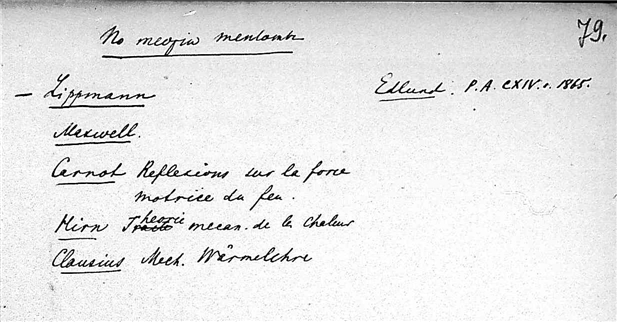 79.
По теории теплоты
— Lippmann
Edlund. P. A. CXIV. 1865.
Maxwell.
Carnot Reflexions sur la force
motrice du feu.
Hirn Theorie mecan. de la Chaleur
Clausius Mech. Wärmelehre